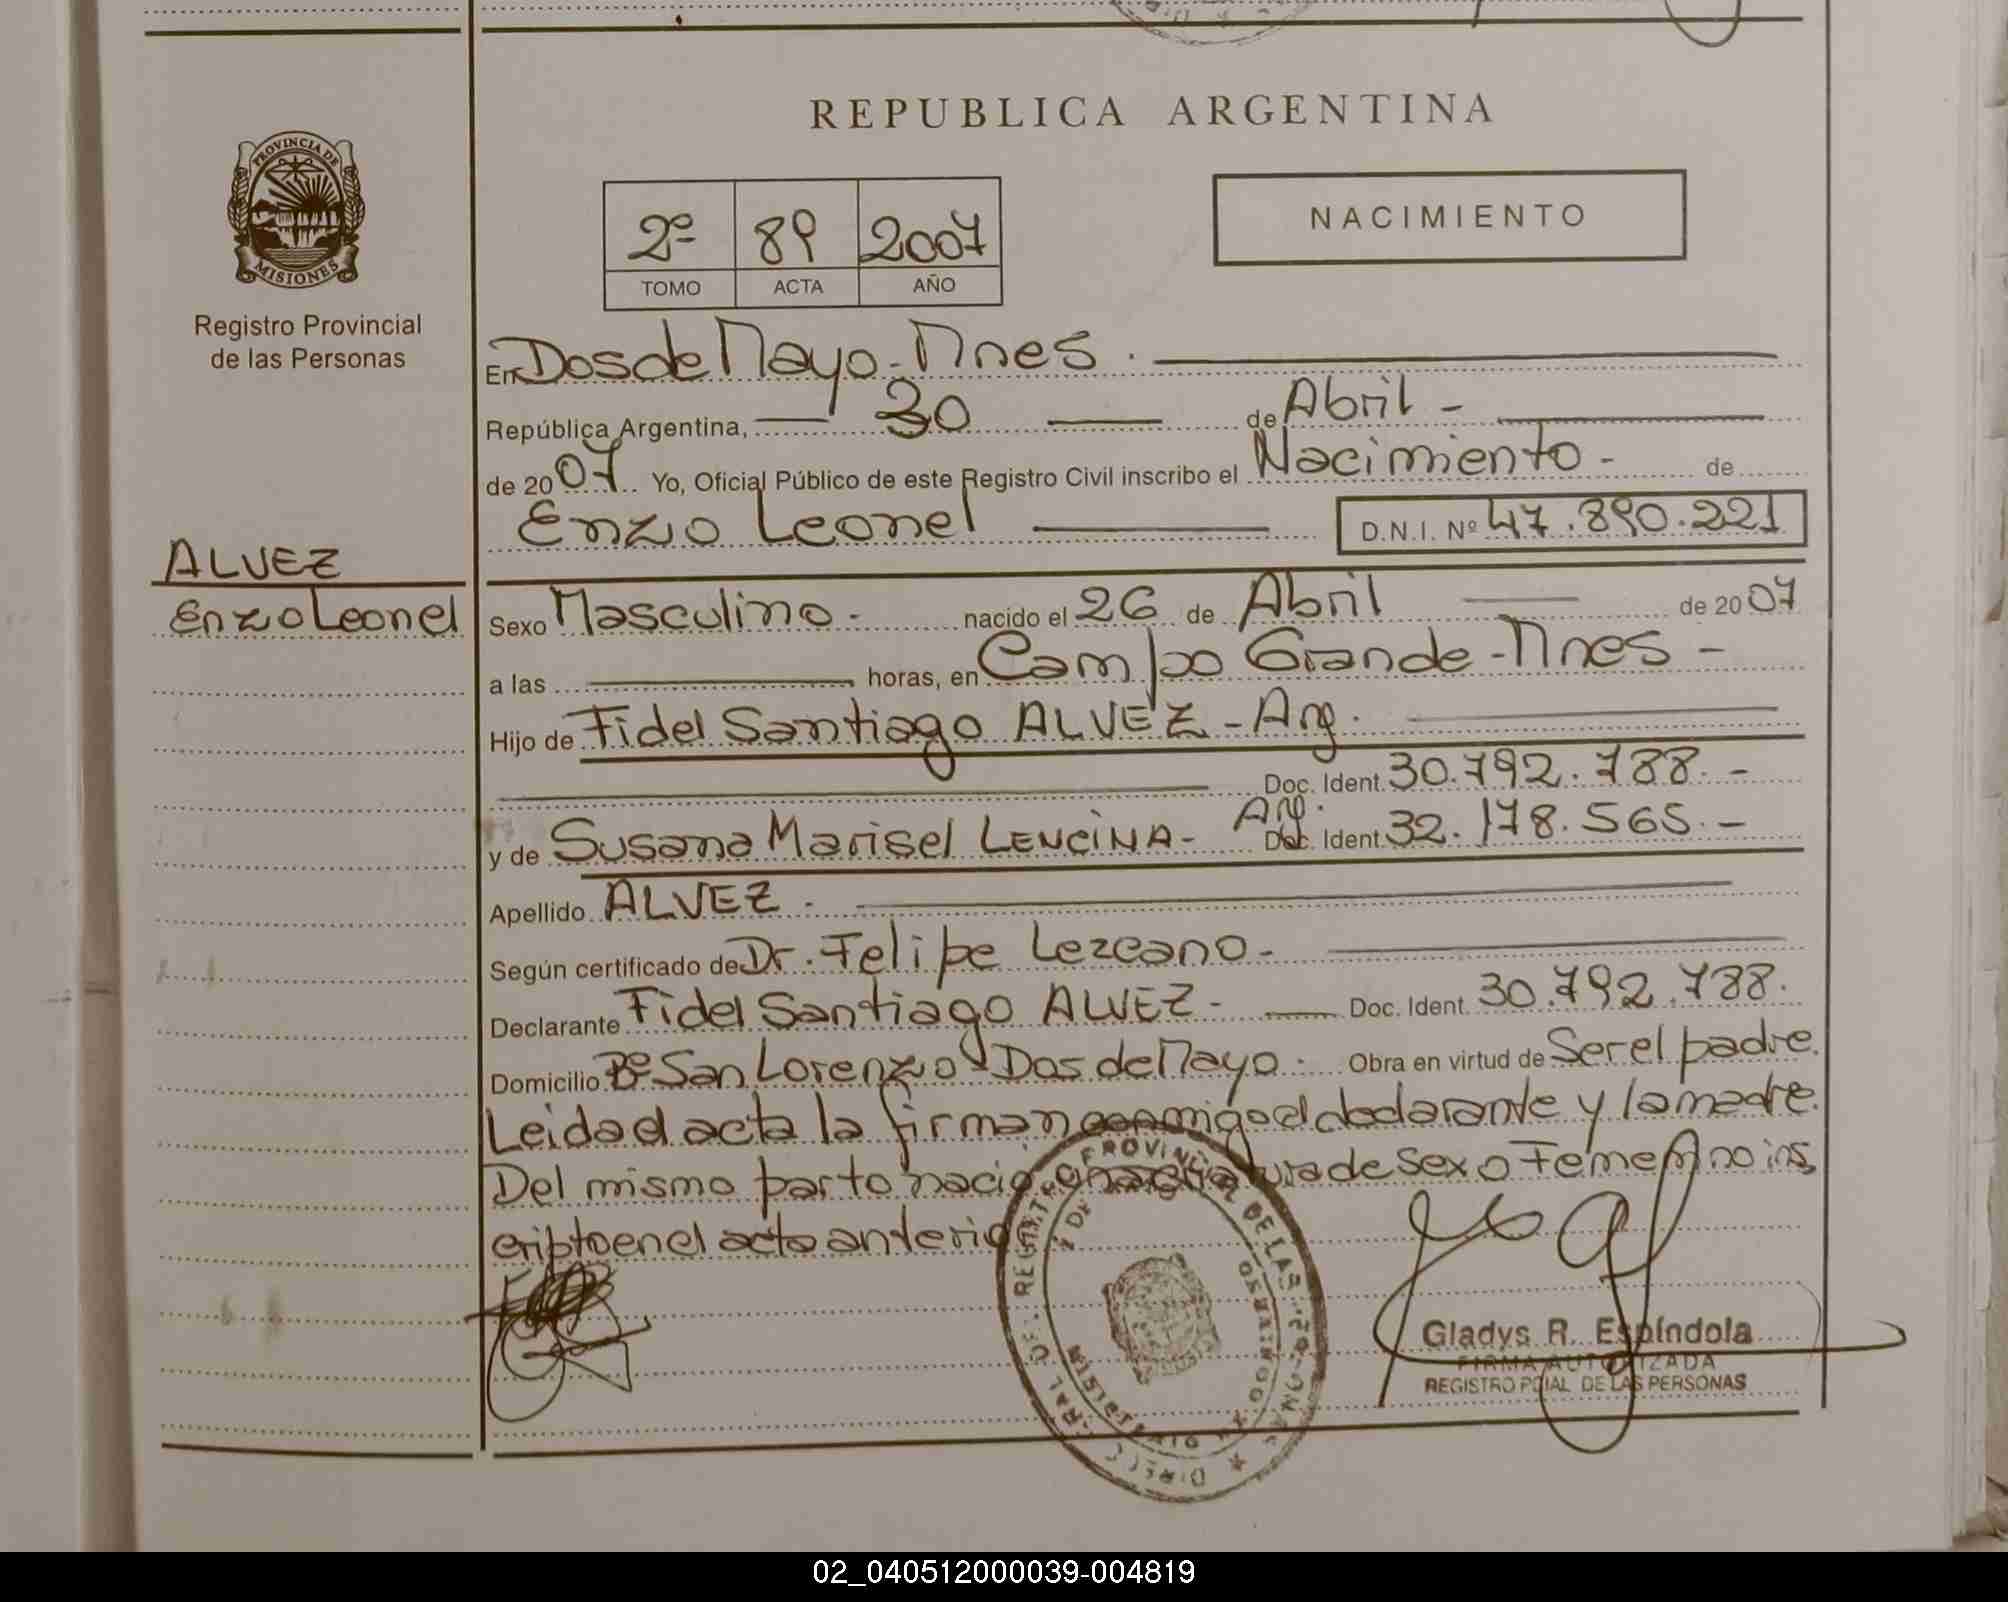 REPUBLICA ARGENTINA
PROVINCIA DE
MISIONES
Registro Provincial
de las Personas
2º 89 2007
TOMO ACTA AÑO
NACIMIENTO
En Dos de Mayo - Mnes.
República Argentina, 30 de Abril -
de 2007 Yo, Oficial Público de este Registro Civil inscribo el Nacimiento - de
Enzo Leonel D.N.I. Nº 47.890.221
ALVEZ
Enzo Leonel
Sexo Masculino - nacido el 26 de Abril de 2007
a las horas, en Campo Grande - Mnes -
Hijo de Fidel Santiago ALVEZ - Arg.
Doc. Ident. 30.792.788. -
y de Susana Marisel LENCINA - Arg. Doc. Ident. 32.178.565. -
Apellido ALVEZ.
Según certificado de Dr. Felipe Lezcano -
Declarante Fidel Santiago ALVEZ - Doc. Ident. 30.792.788.
Domicilio Bº San Lorenzo - Dos de Mayo. Obra en virtud de Ser el padre.
Leida el acta la firman conmigo el declarante y la madre.
Del mismo parto nació una criatura de sexo Femenino ins
cripto en el acta anterior
Gladys R. Espíndola
FIRMA AUTORIZADA
REGISTRO PCIAL DE LAS PERSONAS
02_040512000039-004819